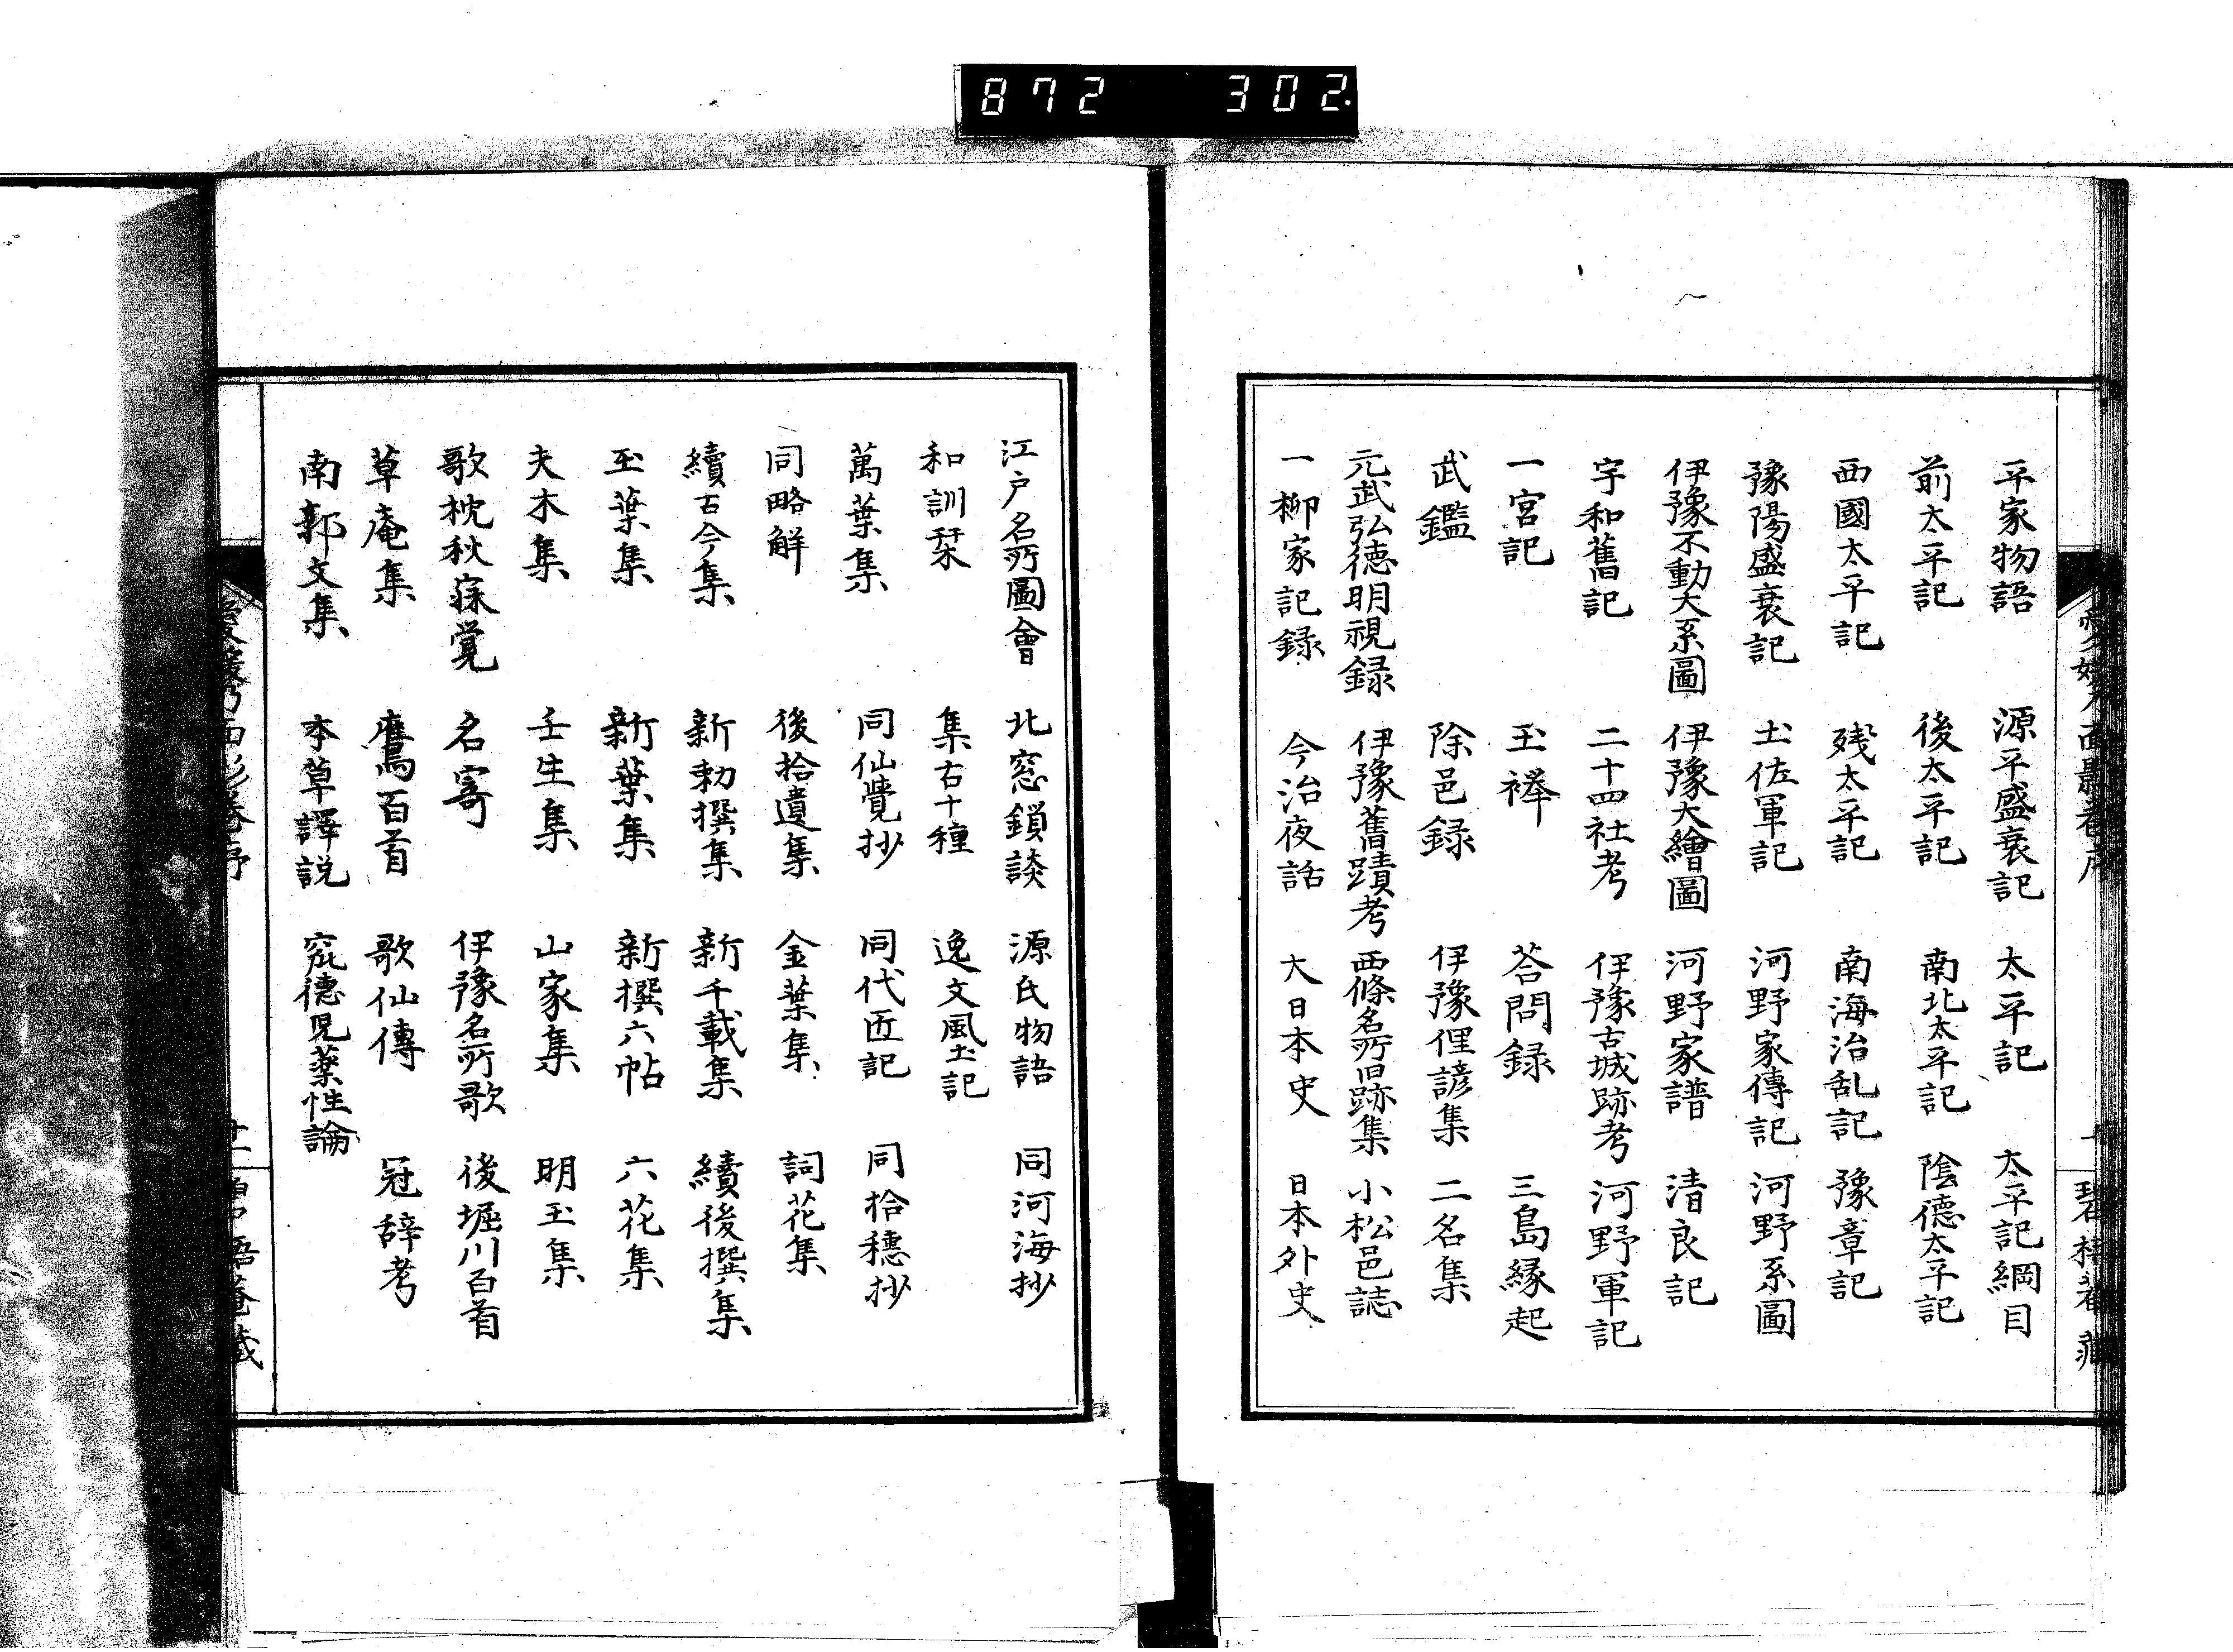 872 302
平家物語 源平盛衰記 太平記 太平記綱目
前太平記 後太平記 南北太平記 陰德太平記
西國太平記 残太平記 南海治乱記 豫章記
豫陽盛衰記 土佐軍記 河野家傳記 河野系圖
伊豫不動大系圖 伊豫大繪圖 河野家譜 清良記
宇和舊記 二十四社考 伊豫古城跡考 河野軍記
一宮記 玉襷 荅問録 三島縁起
武鑑 除邑録 伊豫俚諺集 二名集
元武弘德明視録 伊豫舊蹟考 西條名所旧跡集 小松邑誌
一柳家記録 今治夜話 大日本史 日本外史
江戸名所圖會 北窓鎖談 源氏物語 同河海抄
和訓栞 集古十種 逸文風土記
萬葉集 同仙覺抄 同代匠記 同拾穗抄
同略解 後拾遺集 金葉集 詞花集
續古今集 新勅撰集 新千載集 續後撰集
玉葉集 新葉集 新撰六帖 六花集
夫木集 壬生集 山家集 明玉集
歌枕秋寐覚 名寄 伊豫名所歌 後堀川百首
草庵集 鷹百首 歌仙傳 冠辞考
南郭文集 本草譯説 窕德見薬性論